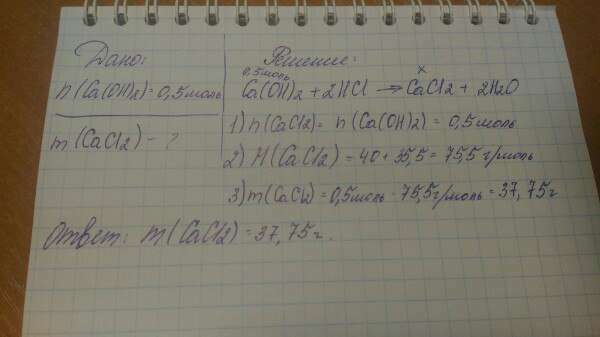 Дано:
n(Ca(OH)2)=0,5моль
m(CaCl2) - ?
Решение:
0,5моль x
Ca(OH)2 + 2HCl → CaCl2 + 2H2O
1) n(CaCl2) = n(Ca(OH)2) = 0,5моль
2) M(CaCl2) = 40 + 35,5 = 75,5г/моль
3) m(CaCl2) = 0,5моль · 75,5г/моль = 37,75г
Ответ: m(CaCl2) = 37,75г.